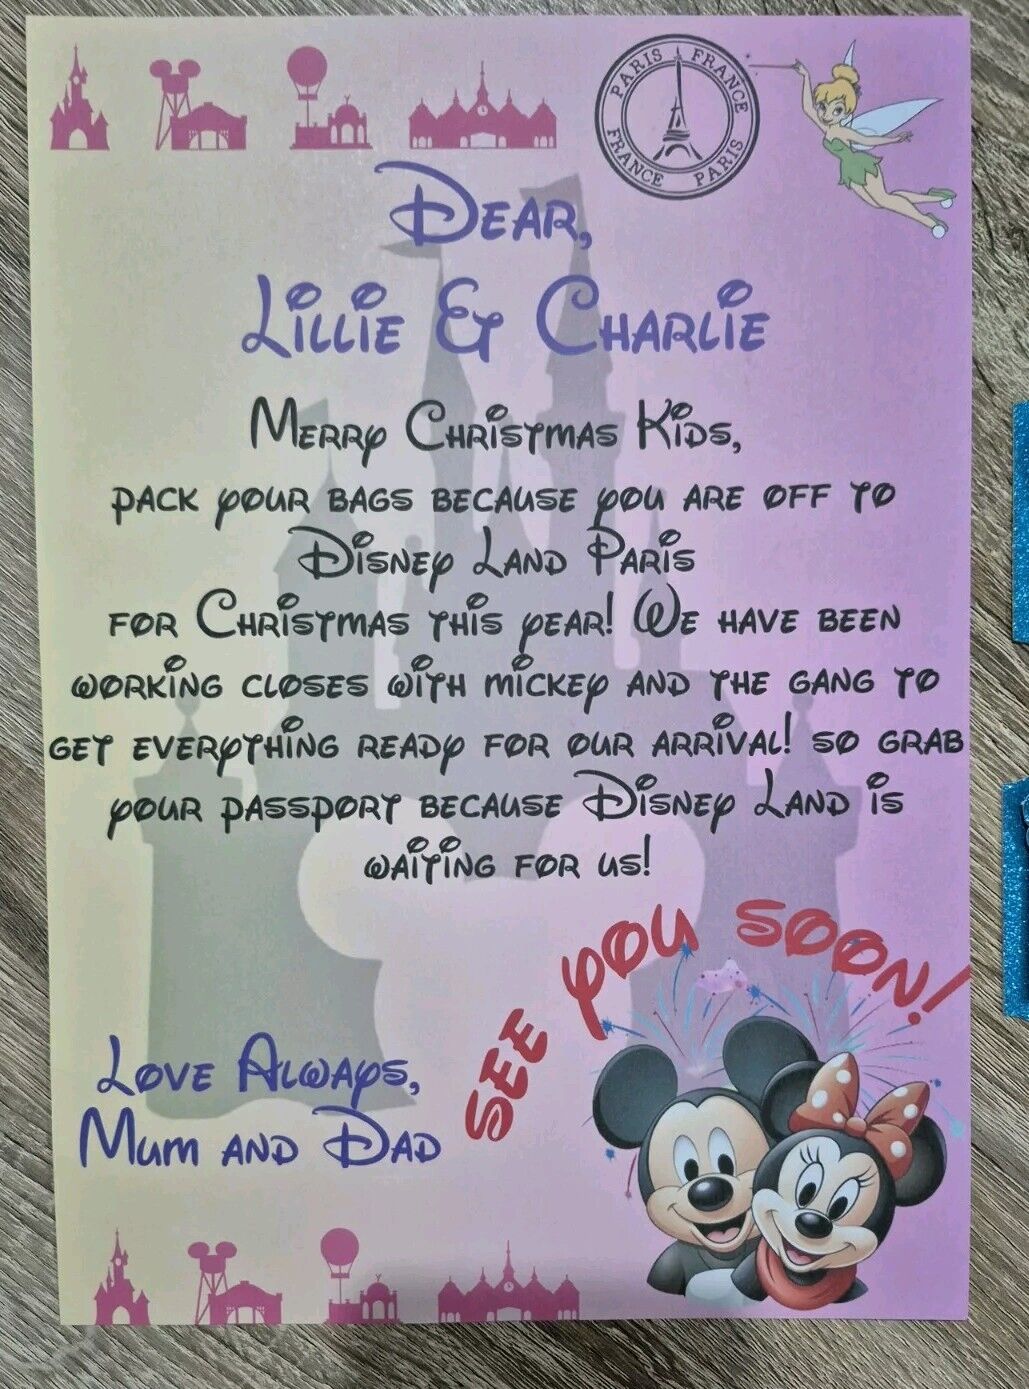 PARIS FRANCE
FRANCE PARIS
Dear,
Lillie & Charlie
Merry Christmas Kids,
pack your bags because you are off to
Disney Land Paris
for Christmas this year! We have been
working closes with mickey and the gang to
get everything ready for our arrival! so grab
your passport because Disney Land is
waiting for us!
See you soon!
Love Always,
Mum and Dad